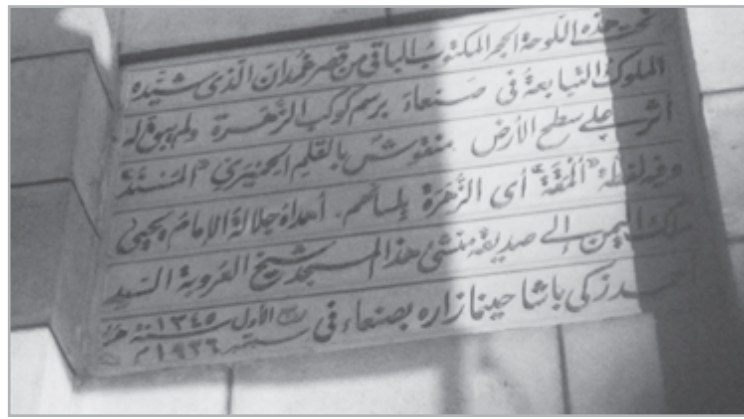 تحت هذه اللوحة الحجر المكتوب الباقى من قصر غمدان الذى شيده
الملوك التبابعة فى صنعاء برسم كوكب الزهرة ولم يبق له
أثر على سطح الأرض منقوش بالقلم الحميري «المسند»
وفيه لفظة «ألمقة» أى الزهرة بلسانهم. أهداه جلالة الإمام يحيى
ملك اليمن إلى صديقه منشئ هذا المسجد شيخ العروبة السيد
أحمد زكى باشا حينما زاره بصنعاء فى ربيع الأول سنة ١٣٤٥ هـ
سنة ١٩٢٦ م